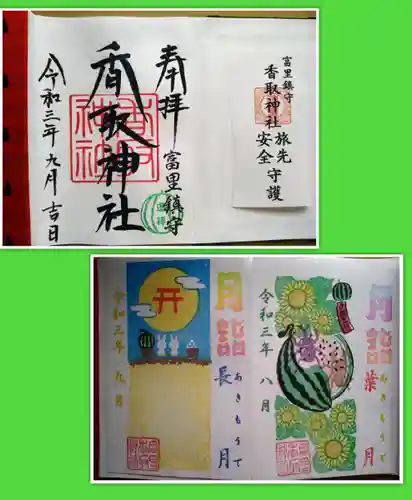 奉拝
富里鎮守
香取神社
令和三年九月吉日
富里鎮守
香取神社
旅先安全
守護
月詣
長月
あきもうで
令和三年 九月
月詣
葉月
あきもうで
令和三年 八月